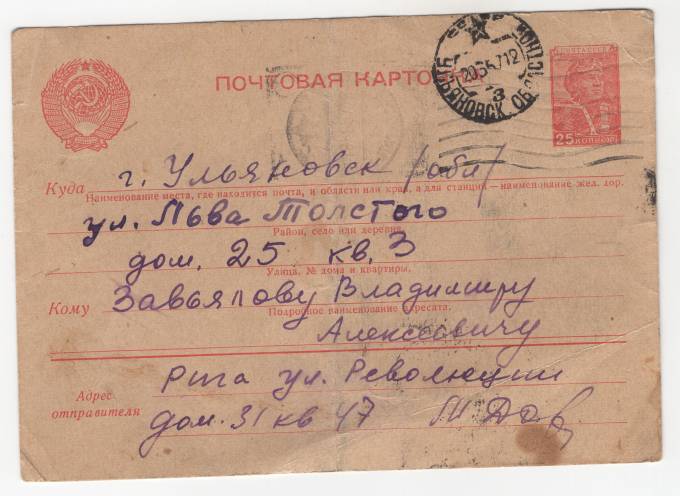 ПОЧТОВАЯ КАРТОЧКА
УЛЬЯНОВСК ОБЛ
25 КОПЕЕК
Куда г. Ульяновск /обл/
Наименование места, где находится почта, и области или края, а для станций — наименование жел. дор.
ул. Льва Толстого
Район, село или деревня
дом. 25 кв. 3
Улица, № дома и квартиры.
Кому Завьялову Владимиру
Подробное наименование адресата.
Алексеевичу
Рига ул. Революции
Адрес
отправителя дом. 31 кв 47